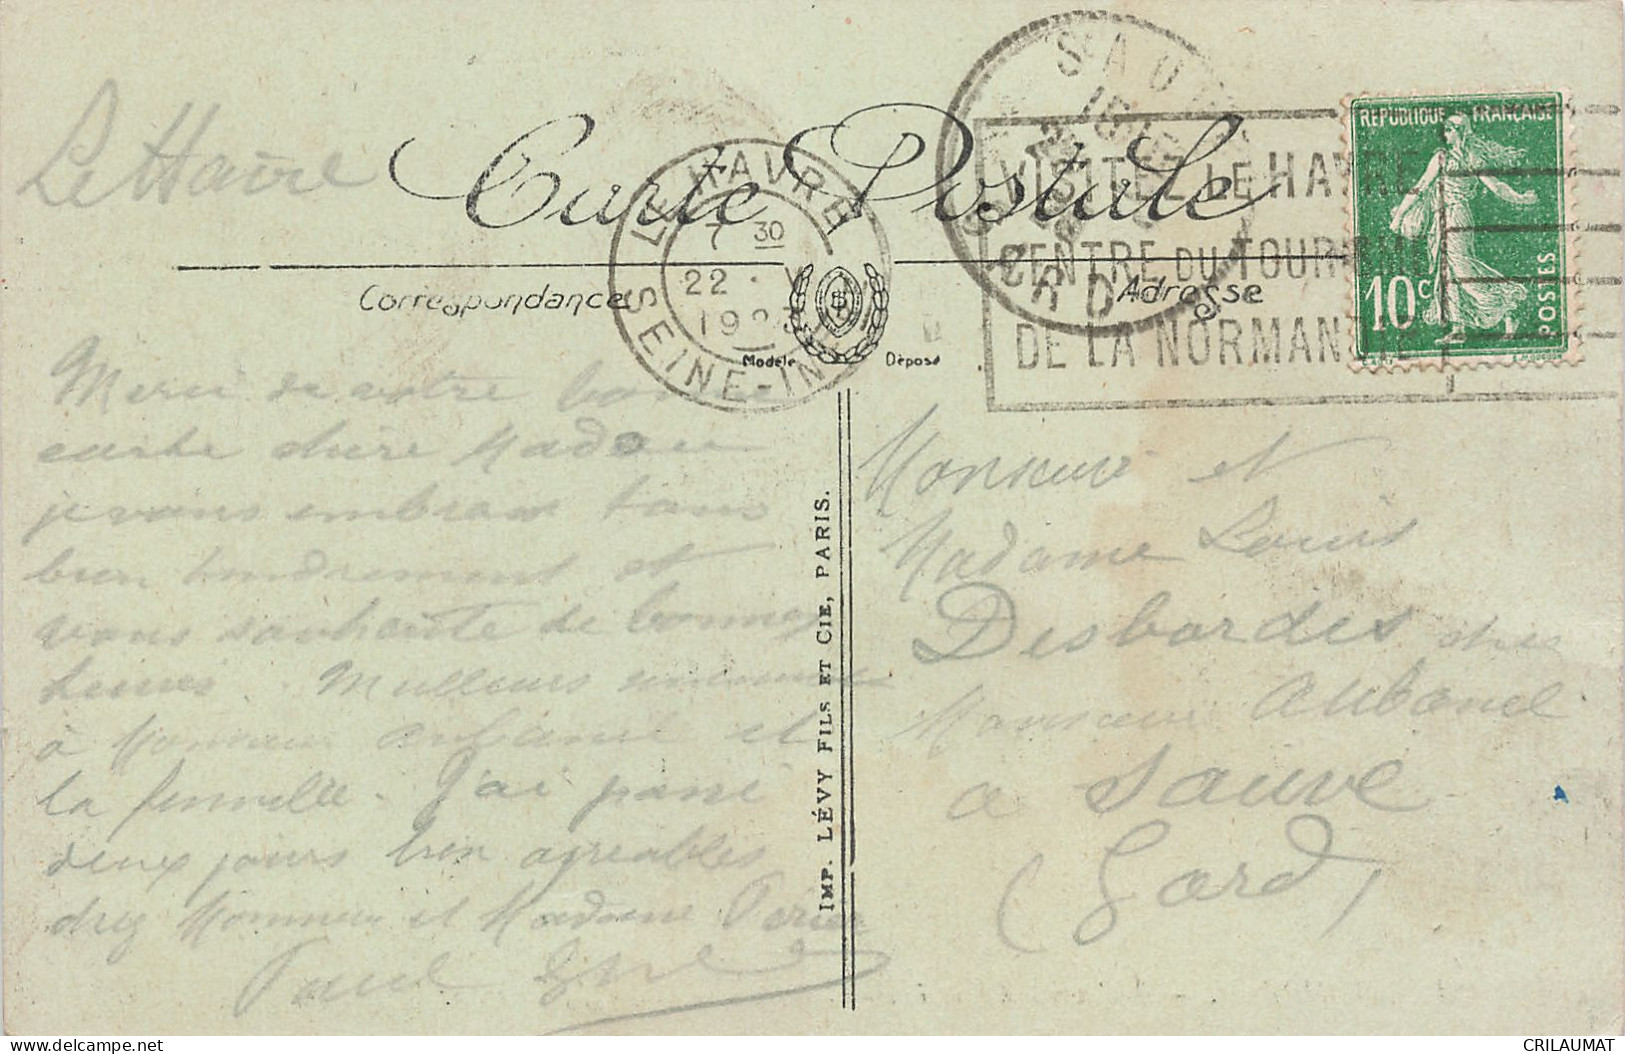 Le Havre
Carte Postale
Correspondance
Adresse
Modèle Déposé
LE HAVRE
7 30
22
SEINE-IN
SAUVE
GARD
VISITEZ LE HAVRE
CENTRE DU TOURISME
DE LA NORMANDIE
REPUBLIQUE FRANÇAISE
10c
POSTES
Merci de votre bonne
carte chère Madame
je vous embrasse tous
bien tendrement et
vous souhaite de bonnes
Meilleurs
à Monsieur Aubanel et
la famille. J'ai passé
deux jours bien agréables
chez Monsieur et Madame
Paul
IMP. LÉVY FILS ET CIE, PARIS.
Monsieur et
Madame Louis
Desbordes chez
Monsieur Aubanel
a Sauve
(Gard)
delcampe.net
CRILAUMAT